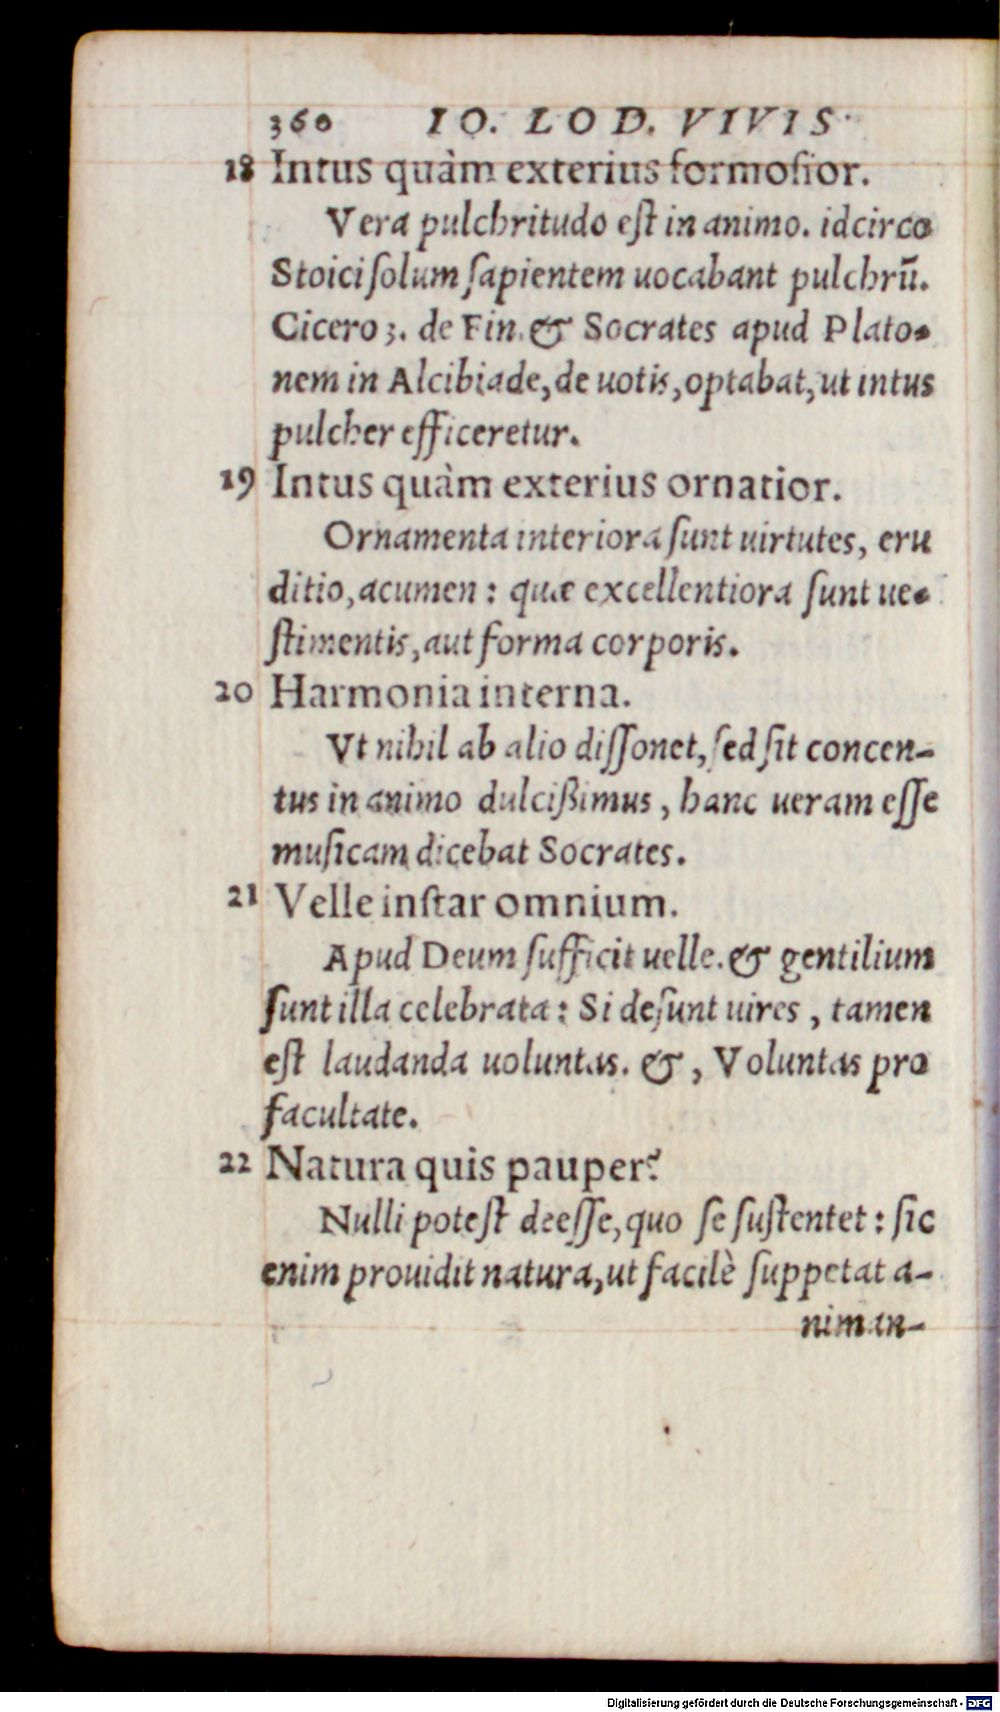 360 IO. LOD. VIVIS.
18 Intus quàm exterius formoſior.
Vera pulchritudo eſt in animo. idcirco
Stoici ſolum ſapientem uocabant pulchrū.
Cicero 3. de Fin. & Socrates apud Plato-
nem in Alcibiade, de uotis, optabat, ut intus
pulcher efficeretur.
19 Intus quàm exterius ornatior.
Ornamenta interiora ſunt uirtutes, eru
ditio, acumen: quæ excellentiora ſunt ue-
ſtimentis, aut forma corporis.
20 Harmonia interna.
Vt nihil ab alio diſſonet, ſed ſit concen-
tus in animo dulcißimus, hanc ueram eſſe
muſicam dicebat Socrates.
21 Velle inſtar omnium.
Apud Deum ſufficit uelle. & gentilium
ſunt illa celebrata: Si deſunt uires, tamen
eſt laudanda uoluntas. &, Voluntas pro
facultate.
22 Natura quis pauper?
Nulli poteſt deeſſe, quo ſe ſuſtentet: ſic
enim prouidit natura, ut facilè ſuppetat a-
niman-
Digitalisierung gefördert durch die Deutsche Forschungsgemeinschaft - DFG